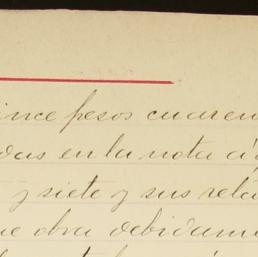 ince pesos cuaren
das en la nota a
y siete y sus rela
ue obra debidam